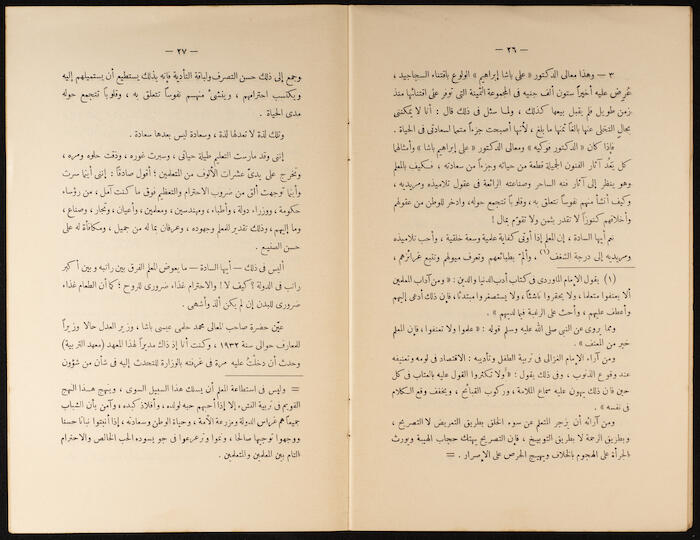 — ٢٦ —
٣ — وهذا معالى الدكتور « على باشا إبراهيم » الولوع باقتناء السجاجيد ،
عُرِض عليه أخيراً ستون ألف جنيه فى المجموعة الثمينة التى توفر على اقتنائها منذ
زمن طويل فلم يقبل بيعها كذلك ، ولما سئل فى ذلك قال : أنا لا يمكننى
بحالٍ التخلى عنها بالغاً ثمنها ما بلغ ، لأنها أصبحت جزءاً متمما لسعادتى فى الحياة .
فإذا كان « الدكتور فوكيه » ومعالى الدكتور « على إبراهيم باشا » وأمثالها
كل يَعُد آثار الفنون الجميلة قطعة من حياته وجزءاً من سعادته ، فكيف بالمعلم
وهو ينظر إلى آثار فنه الساحر وصناعته الرائعة فى عقول تلاميذه ومريديه ،
وكيف أنشأ منهم نفوساً تتعلق به ، وقلوباً تتجمع حوله، وادخر للوطن من عقولهم
وأخلاقهم كنوزاً لا تقدر بثمن ولا تقوّم بمال !
نعم أيها السادة ، إن المعلم إذا أوتى كفاية علمية وسعة خلقية ، وأحب تلاميذه
ومريديه إلى درجة الشغف (١) ، وألمّ بطبائعهم وتعرف ميولهم وتتبع غرائزهم ،
(١) يقول الإمام الماوردى فى كتاب أدب الدنيا والدين : « ومن آداب المعلمين
ألا يعنفوا متعلما ، ولا يحقروا ناشئاً ، ولا يستصغروا مبتدئا ، فإن ذلك أدعى إليهم
وأعطف عليهم ، وأحث على الرغبة فيما لديهم » .
ومما يروى عن النبى صلى الله عليه وسلم قوله : « علموا ولا تعنفوا ، فإن المعلم
خير من المعنف » .
ومن آراء الإمام الغزالى فى تربية الطفل وتأديبه : الاقتصاد فى لومه وتعنيفه
عند وقوع الذنوب ، وفى ذلك يقول : « ولا تكثروا القول عليه بالعتاب فى كل
حين فإن ذلك يهون عليه سماع الملامة ، وركوب القبائح ، ويخفف وقع الكلام
فى نفسه » .
ومن آرائه أن يزجر المتعلم عن سوء الخلق بطريق التعريض لا التصريح ،
وبطريق الرحمة لا بطريق التوبيخ ، فإن التصريح يهتك حجاب الهيبة ويورث
الجرأة على الهجوم بالخلاف ويهيج الحرص على الإصرار . =
— ٢٧ —
وجمع إلى ذلك حسن التصرف ولباقة التأدية فإنه بذلك يستطيع أن يستميلهم إليه
ويكتسب احترامهم ، وينشئ منهم نفوساً تتعلق به ، وقلوباً تتجمع حوله
مدى الحياة .
وتلك لذة لا تعدلها لذة ، وسعادة ليس بعدها سعادة .
إننى وقد مارست التعليم طيلة حياتى ، وسبرت غوره ، وذقت حلوه ومره ،
وتخرج على يدىّ عشرات الألوف من المتعلمين ؛ أقول صادقاً : إننى أينما سرت
وأينما توجهت ألق من ضروب الاحترام والتعظيم فوق ما كنت آمل ، من رؤساء
حكومة ، ووزراء دولة ، وأطباء ، ومهندسين ، ومعلمين ، وأعيان ، وتجار ، وصناع ،
وما إليهم ، وذلك تقدير لفعل المعلم وجهوده ، وعرفان بما له من جميل ، ومكافأة له على
حسن الصنيع .
أليس فى ذلك — أيها السادة — ما يعوض المعلم الفرق بين راتبه وبين أكبر
راتب فى الدولة ؟ كيف لا ! والاحترام غذاء ضرورى للروح ؛ كما أن الطعام غذاء
ضرورى للبدن إن لم يكن ألذ وأشهى .
عيّن حضرة صاحب المعالى محمد حلمى عيسى باشا ، وزير العدل حالا وزيراً
للمعارف حوالى سنة ١٩٣٢ ، وكنت أنا إذ ذاك مديراً لهذا المعهد (معهد التربية)
وحدث أن دخلتُ عليه مرة فى غرفته بالوزارة للتحدث إليه فى شأن من شؤون
= وليس فى استطاعة المعلم أن يسلك هذا السبيل السوى ، وينهج هذا النهج
القويم فى تربية النشء ، إلا إذا أحبهم حبه لولده ، وأفلاذ كبده ، وآمن بأن الشباب
جميعا هم غراس الدولة ومزرعة الأمة ، وحياة الوطن وسعادته ، إذا أنبتوا نباتا حسنا
ووجهوا توجيها صالحا ، ونموا وترعرعوا فى جو يسوده الحب الخالص والاحترام
التام بين المعلمين والمتعلمين .